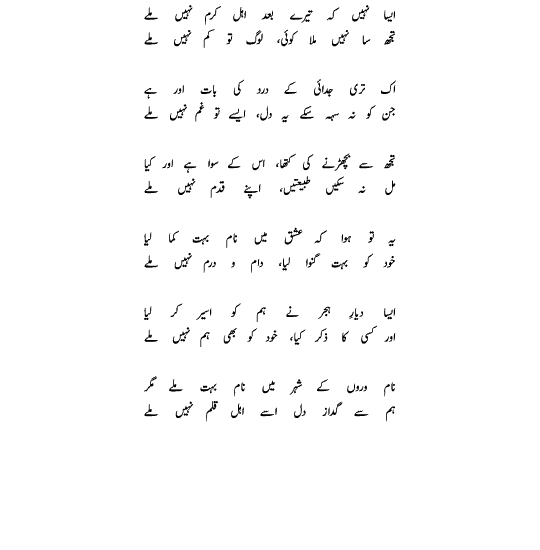 ایسا نہیں کہ تیرے بعد اہل کرم نہیں ملے
تجھ سا نہیں ملا کوئی، لوگ تو کم نہیں ملے
اک تری جدائی کے درد کی بات اور ہے
جن کو نہ سہہ سکے یہ دل، ایسے تو غم نہیں ملے
تجھ سے بچھڑنے کی کتھا، اس کے سوا ہے اور کیا
مل نہ سکیں طبیعتیں، اپنے قدم نہیں ملے
یہ تو ہوا کہ عشق میں نام بہت کما لیا
خود کو بہت گنوا لیا، دام و درم نہیں ملے
ایسا دیار ہجر نے ہم کو اسیر کر لیا
اور کسی کا ذکر کیا، خود کو بھی ہم نہیں ملے
نام وروں کے شہر میں نام بہت ملے مگر
ہم سے گداز دل اسے اہل قلم نہیں ملے